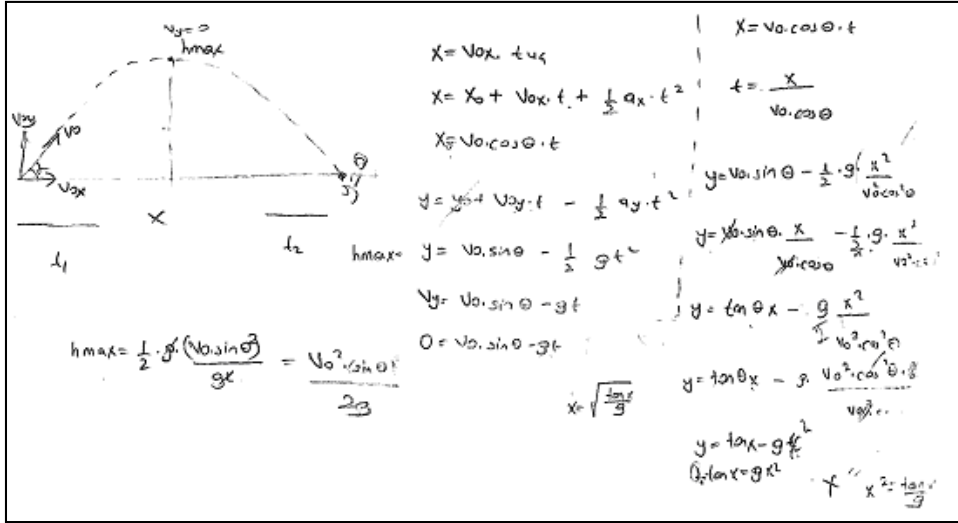 Vy=0
hmax
V0y
V0
V0x
θ
x
t1
t2
hmax = 1/2 · g · (V0.sinθ)²/g² = V0²·(sinθ)/2g
X = V0x. tuç
X = X0 + V0x·t + 1/2 ax·t²
X = V0·cosθ·t
y = y0 + V0y·t - 1/2 ay·t²
hmax= y = V0.sinθ - 1/2 gt²
Vy = V0.sinθ - gt
0 = V0.sinθ - gt
x = √(tanx/g)
X = V0.cosθ.t
t = x/V0.cosθ
y = V0.sinθ - 1/2 · g · x²/V0²cos²θ
y = V0.sinθ. x/V0.cosθ - 1/2 · g. x²/V0²
y = tanθx - g x²/2 V0².cos²θ
y = tanθx - g. V0².cos²θ
y = tanx - g x²
0 = tanx = gx²
x² = tanx/g